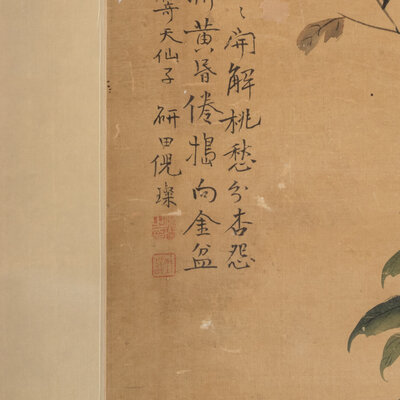 開解桃愁分杏怨
黃昏倦搗向金盆
寄天仙子 研田倪璨